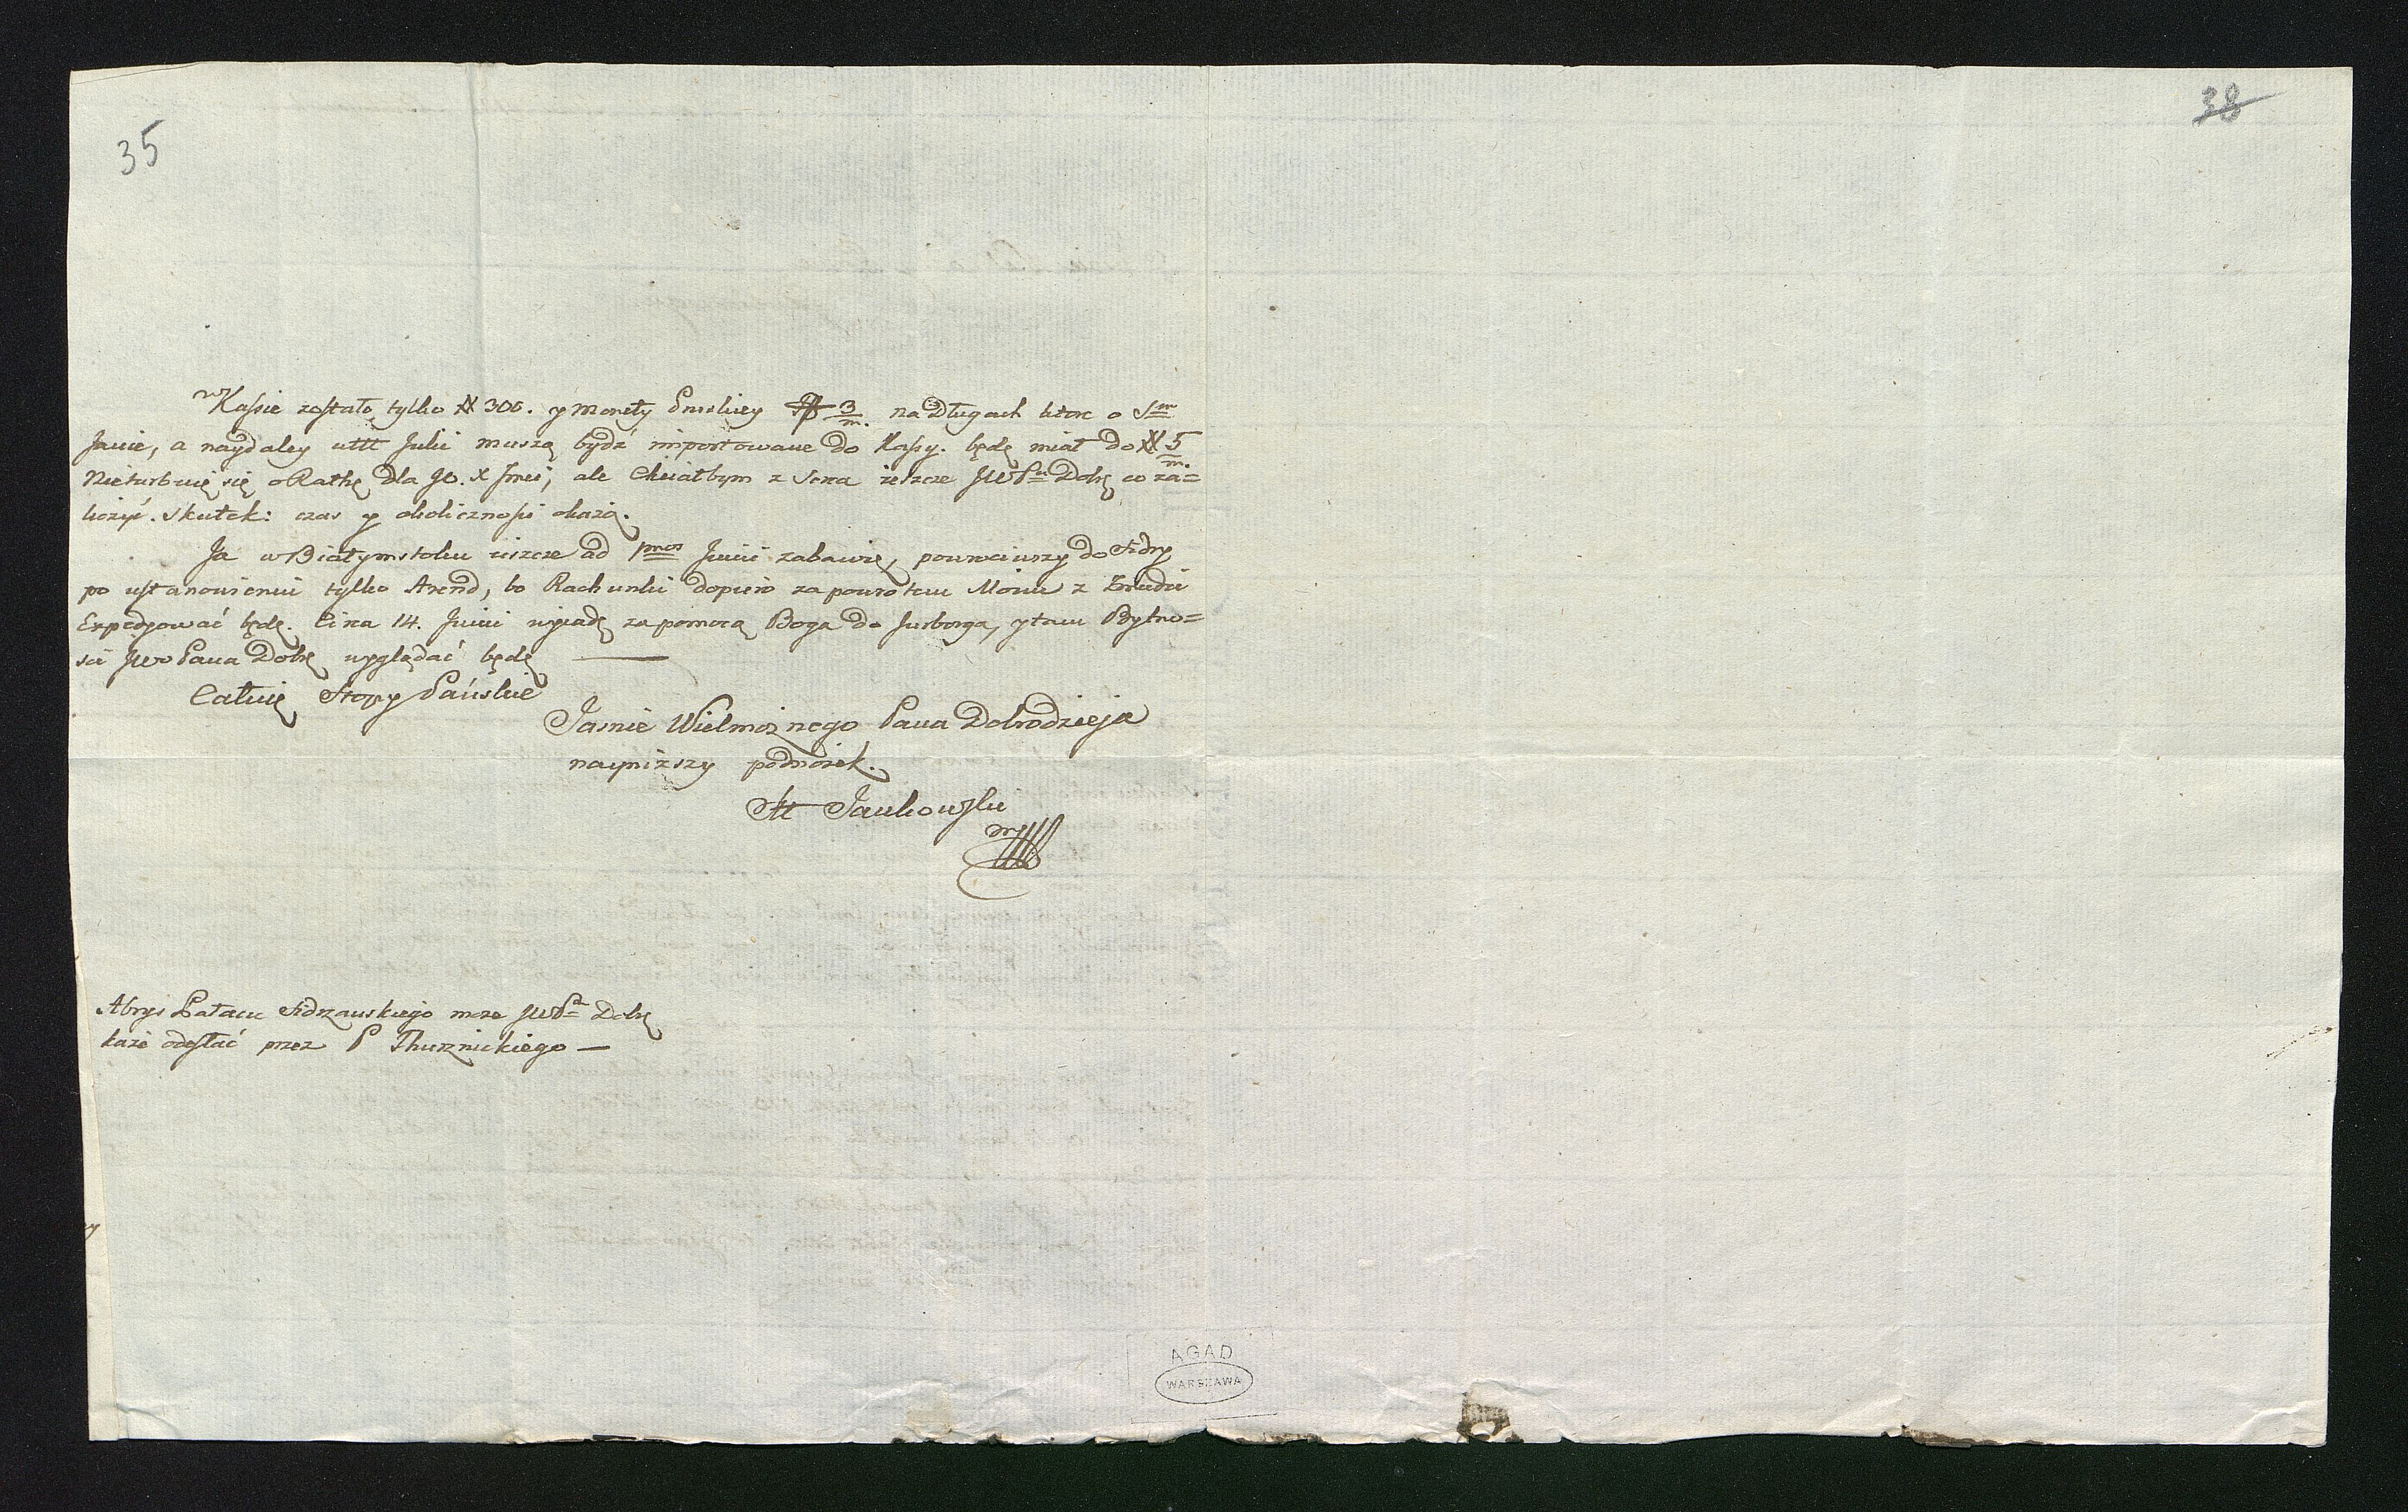 35
38
w Kassie zostało tylko # 300. y Monety Pruskiey 3/m. na Długach ktore o Sm
Janie, a naydaley ultt Julii muszą bydź importowane do Kassy. będę miał do # 5/m.
Nieturbuię się o Rathę dla JO. X Jmci, ale Chciałbym z Serca ieszcze JWPu Dobr. co za=
liczyć. Skutek: czas y okolicznosci okażą.
Ja w Białymstoku ieszcze ad pmos Junii zabawię, powrociwszy do Sidry
po ustanowieniu tylko Arend, bo Rachunki dopiero za powrotem Moim z
Expedyować będę. Circa 14. Junii wyiadę za pomocą Boga do Jurborga, y tam Bytno=
sci JWo Pana Dobr. wyglądać będę —
Całuię Stopy Pańskie
Jasnie Wielmożnego Pana Dobrodzieja
nayniższy podnożek.
Jankowski
mp
Abrys Pałacu Sidrzanskiego może JWPa Dobr.
każe odesłać przez P Thurznickiego —
AGAD
WARSZAWA